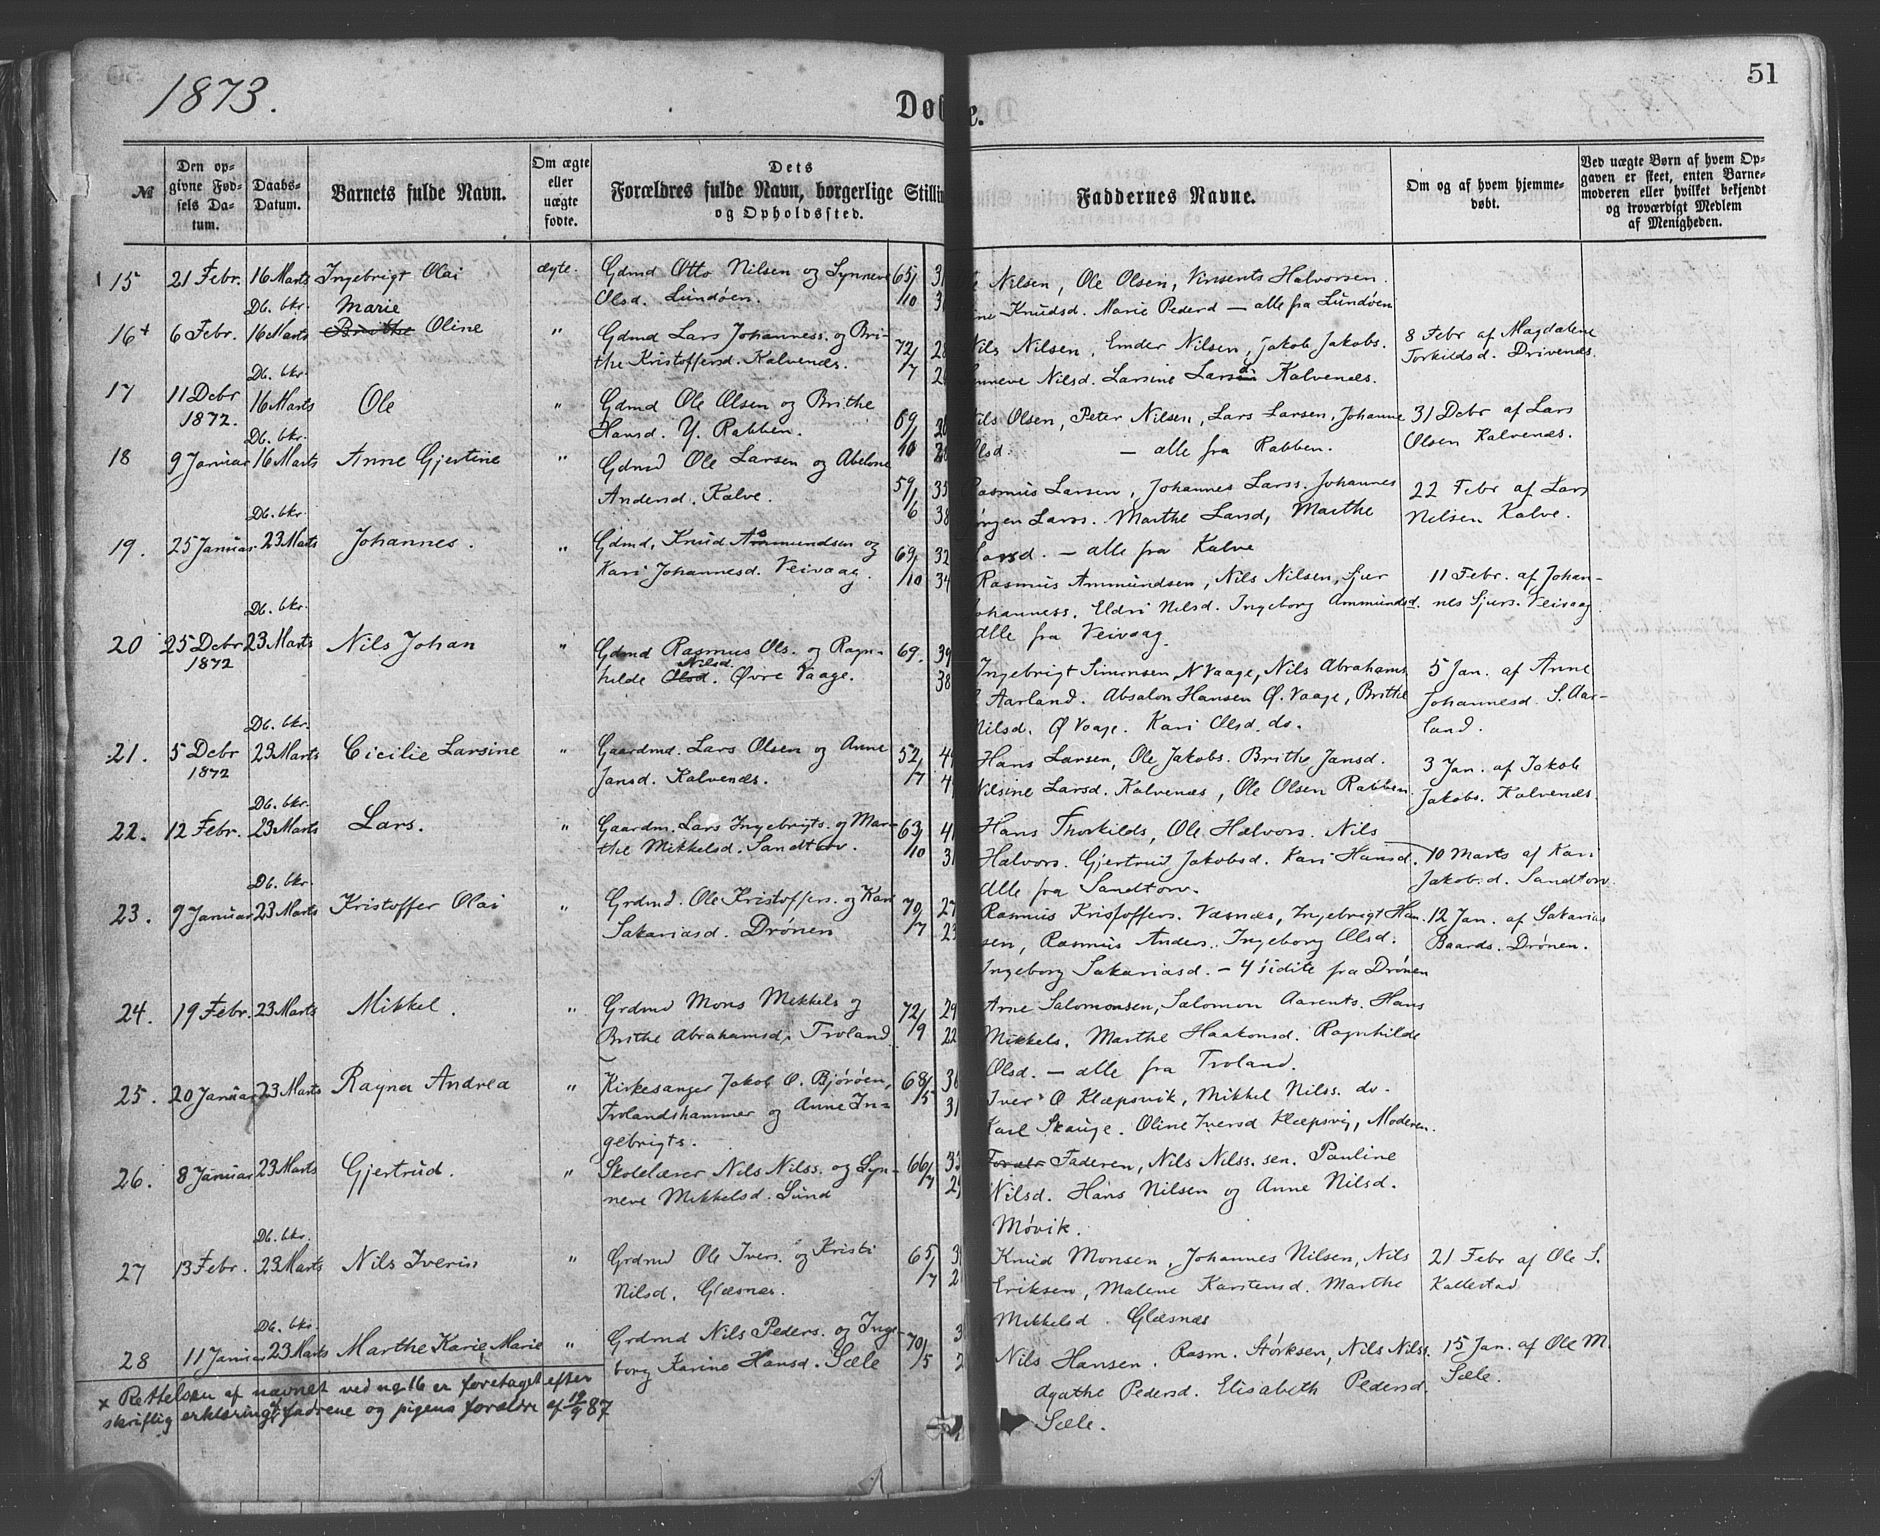 1873.
Døbte.
51
№
Den opgivne Fødsels Datum.
Daabs-Datum.
Barnets fulde Navn.
Om ægte eller uægte fødte.
Dets Forældres fulde Navn, borgerlige Stilling og Opholdssted.
Faddernes Navne.
Om og af hvem hjemmedøbt.
Ved uægte Børn af hvem Opgaven er skeet, enten Barnemoderen eller hvilket bekjendt og troværdigt Medlem af Menigheden.
15 21 Febr. 16 Marts Ingebrigt Olai ægte. Gdmd Otto Nilsen og Synneve 65/10 31 Nilsen, Ole Olsen, Vinsents Halvorsen.
Olsd. Lundøen. Knudsd. Marie Pedersd — alle fra Lundøen
Db. bkr. Marie
16+ 6 Febr. 16 Marts Brithe Oline " Gdmd Lars Johanness. og Bri- 72/7 28 Nils Nilsen, Emder Nilsen, Jakob Jakobs. 8 Febr af Magdalene
the Kristoffersd Kalvenæs. Synneve Nilsd. Larsine Larsd Kalvenæs. Torkildsd. Drivenæs.
Db. bkr.
17 11 Debr 16 Marts Ole " Gdmd Ole Olsen og Brithe 69/10 Nils Olsen, Peter Nilsen, Lars Larsen, Johanne 31 Debr af Lars
1872. Hansd. Y. Rabben. 28 Olsd. — alle fra Rabben. Olsen Kalvenæs.
Db. bkr.
18 9 Januar 16 Marts Anne Gjertine " Gdmd Ole Larsen og Abelone 59/6 35 Rasmus Larsen, Johannes Larss. Johannes 22 Febr af Lars
Andersd. Kalve. 38 Jørgen Larss. Marthe Larsd, Marthe Nelsen Kalve.
Larsd. — alle fra Kalve
Db. bkr.
19. 25 Januar 23 Marts Johannes. " Gdmd, Knud Asmundsen og 69/10 32 Rasmus Ammundsen, Nils Nilsen, Sjur 11 Febr. af Johan-
Kari Johannesd. Veivaag. 34 Johanness. Eldri Nilsd. Ingeborg Ammundsd. nes Sjurs. Veivaag
alle fra Veivaag.
Db. bkr.
20 25 Debr 23 Marts Nils Johan " Gdmd Rasmus Ols. og Ragn- 69. 39 Ingebrigt Simonsen N Vaage, Nils Abrahams. 5 Jan. af Anne
1872 hilde Olsd. Nilsd. Øvre Vaage. 38 Aarland. Absalon Hansen Ø. Vaage, Brithe Johannesd. S. Aar-
Nilsd. Ø Vaage. Kari Olsd. do. land.
Db. bkr.
21. 5 Debr 23 Marts Cicilie Larsine " Gaardmd. Lars Olsen og Anne 52/7 Hans Larsen, Ole Jakobs. Brithe Jansd. 3 Jan. af Jakob
1872 Jansd. Kalvenæs. Nilsine Larsd. Kalvenæs, Ole Olsen Rabben. Jakobs. Kalvenæs.
Db. bkr.
22. 12 Febr. 23 Marts Lars. " Gaardm. Lars Ingebrigts. og Mar- 63/10 41 Hans Thorkilds, Ole Halvors. Nils
the Mikkelsd. Sandtorv. Halvors. Gjertrud Jakobsd. Kari Hansd. 10 Marts af Kari
Alle fra Sandtorv. Jakobsd. Sandtorv.
Db. bkr.
23. 9 Januar 23 Marts Kristoffer Olai " Grdmd. Ole Kristoffers. og Kari 70/7 27 Rasmus Kristoffers. Væsnæs, Ingebrigt Han- 12 Jan. af Sakarias
Sakariasd. Drønen 23 sen, Rasmus Anders. Ingeborg Olsd. Baards. Drønen.
Ingeborg Sakariasd. — 4 sidste fra Drønen
24. 19 Febr. 23 Marts Mikkel. " Grdmd Mons Mikkels og 72/9 29 Arne Salomonsen, Salomon Aarents. Hans
Brithe Abrahamsd. Troland 22 Mikkels. Marthe Haakonsd. Ragnhilde
Olsd. — alle fra Troland.
25. 20 Januar 23 Marts Ragna Andrea " Kirkesanger Jakob O. Bjørøen, 68/5 Iver O Klæpsvik, Mikkel Nilss. do.
Trolandshammer og Anne In- 31 Karl Skauge. Oline Iversd Klæpsvig, Moderen.
gebrigts.
26. 8 Januar 23 Marts Gjertrud. " Skolelærer Nils Nilss. og Syn- 66/7 Faderen, Nils Nilss. sen. Pauline
neve Mikkelsd. Sund Nilsd. Hans Nilsen og Anne Nilsd.
Møvik.
Db. bkr.
27 13 Febr. 23 Marts Nils Iverin " Grdmd Ole Ivers. og Kristi 65/7 Knud Monsen, Johannes Nilsen, Nils 21 Febr af Ole S.
Nilsd. Glæsnæs. Eriksen, Malene Karstensd. Marthe Kallestad
Mikkelsd. Glæsnæs
Db. bkr.
28 11 Januar 23 Marts Marthe Karie Marie " Grdmd Nils Peders. og Inge- 70/5 Nils Hansen. Rasm. Størksen, Nils Nils. 15 Jan. af Ole M.
borg Karine Hansd. Sæle Agathe Pedersd. Elisabeth Pedersd. Sæle.
Sæle.
x Rettelsen af navnet ved no 16 er foretaget efter
skriftlig erklæring af fadrene og pigens forældre af 19/9 87